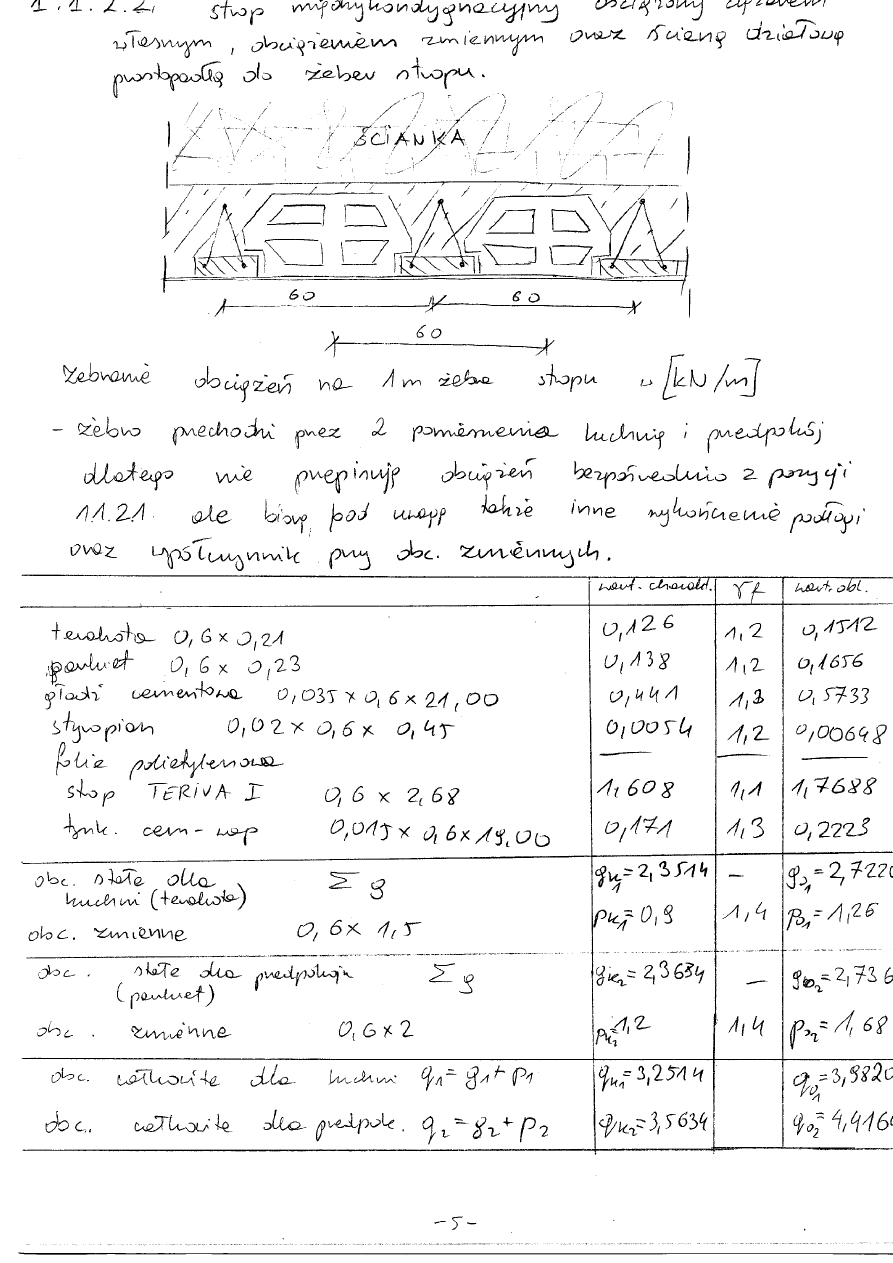 1.1.2.2. strop międzykondygnacyjny obciążony ciężarem
własnym, obciążeniem zmiennym oraz ścianą działową
prostopadłą do żeber stropu.
ŚCIANKA
60 60
60
Zebranie obciążeń na 1m żebra stropu w [kN/m]
- żebro przechodzi przez 2 pomieszczenia kuchnię i przedpokój
dlatego nie przepisuję obciążeń bezpośrednio z pozycji
1.1.2.1. ale biorę pod uwagę także inne wykończenie podłogi
oraz współczynnik przy obc. zmiennych.
wart. charakt. γf wart. obl.
terakota 0,6 x 0,21 0,126 1,2 0,1512
parkiet 0,6 x 0,23 0,138 1,2 0,1656
gładź cementowa 0,035 x 0,6 x 21,00 0,441 1,3 0,5733
styropian 0,02 x 0,6 x 0,45 0,0054 1,2 0,00648
folia polietylenowa — — —
strop TERIVA I 0,6 x 2,68 1,608 1,1 1,7688
tynk. cem-wap 0,015 x 0,6 x 19,00 0,171 1,3 0,2223
obc. stałe dla kuchni (terakota) Σg gk1=2,3514 — go1=2,7220
obc. zmienne 0,6 x 1,5 pk1=0,9 1,4 po1=1,26
obc. stałe dla przedpokoju (parkiet) Σg gk2=2,3634 — go2=2,736
obc. zmienne 0,6 x 2 pk2=1,2 1,4 po2=1,68
obc. całkowite dla kuchni q1=g1+p1 qk1=3,2514 qo1=3,9820
obc. całkowite dla przedpok. q2=g2+p2 qk2=3,5634 qo2=4,4164
-5-